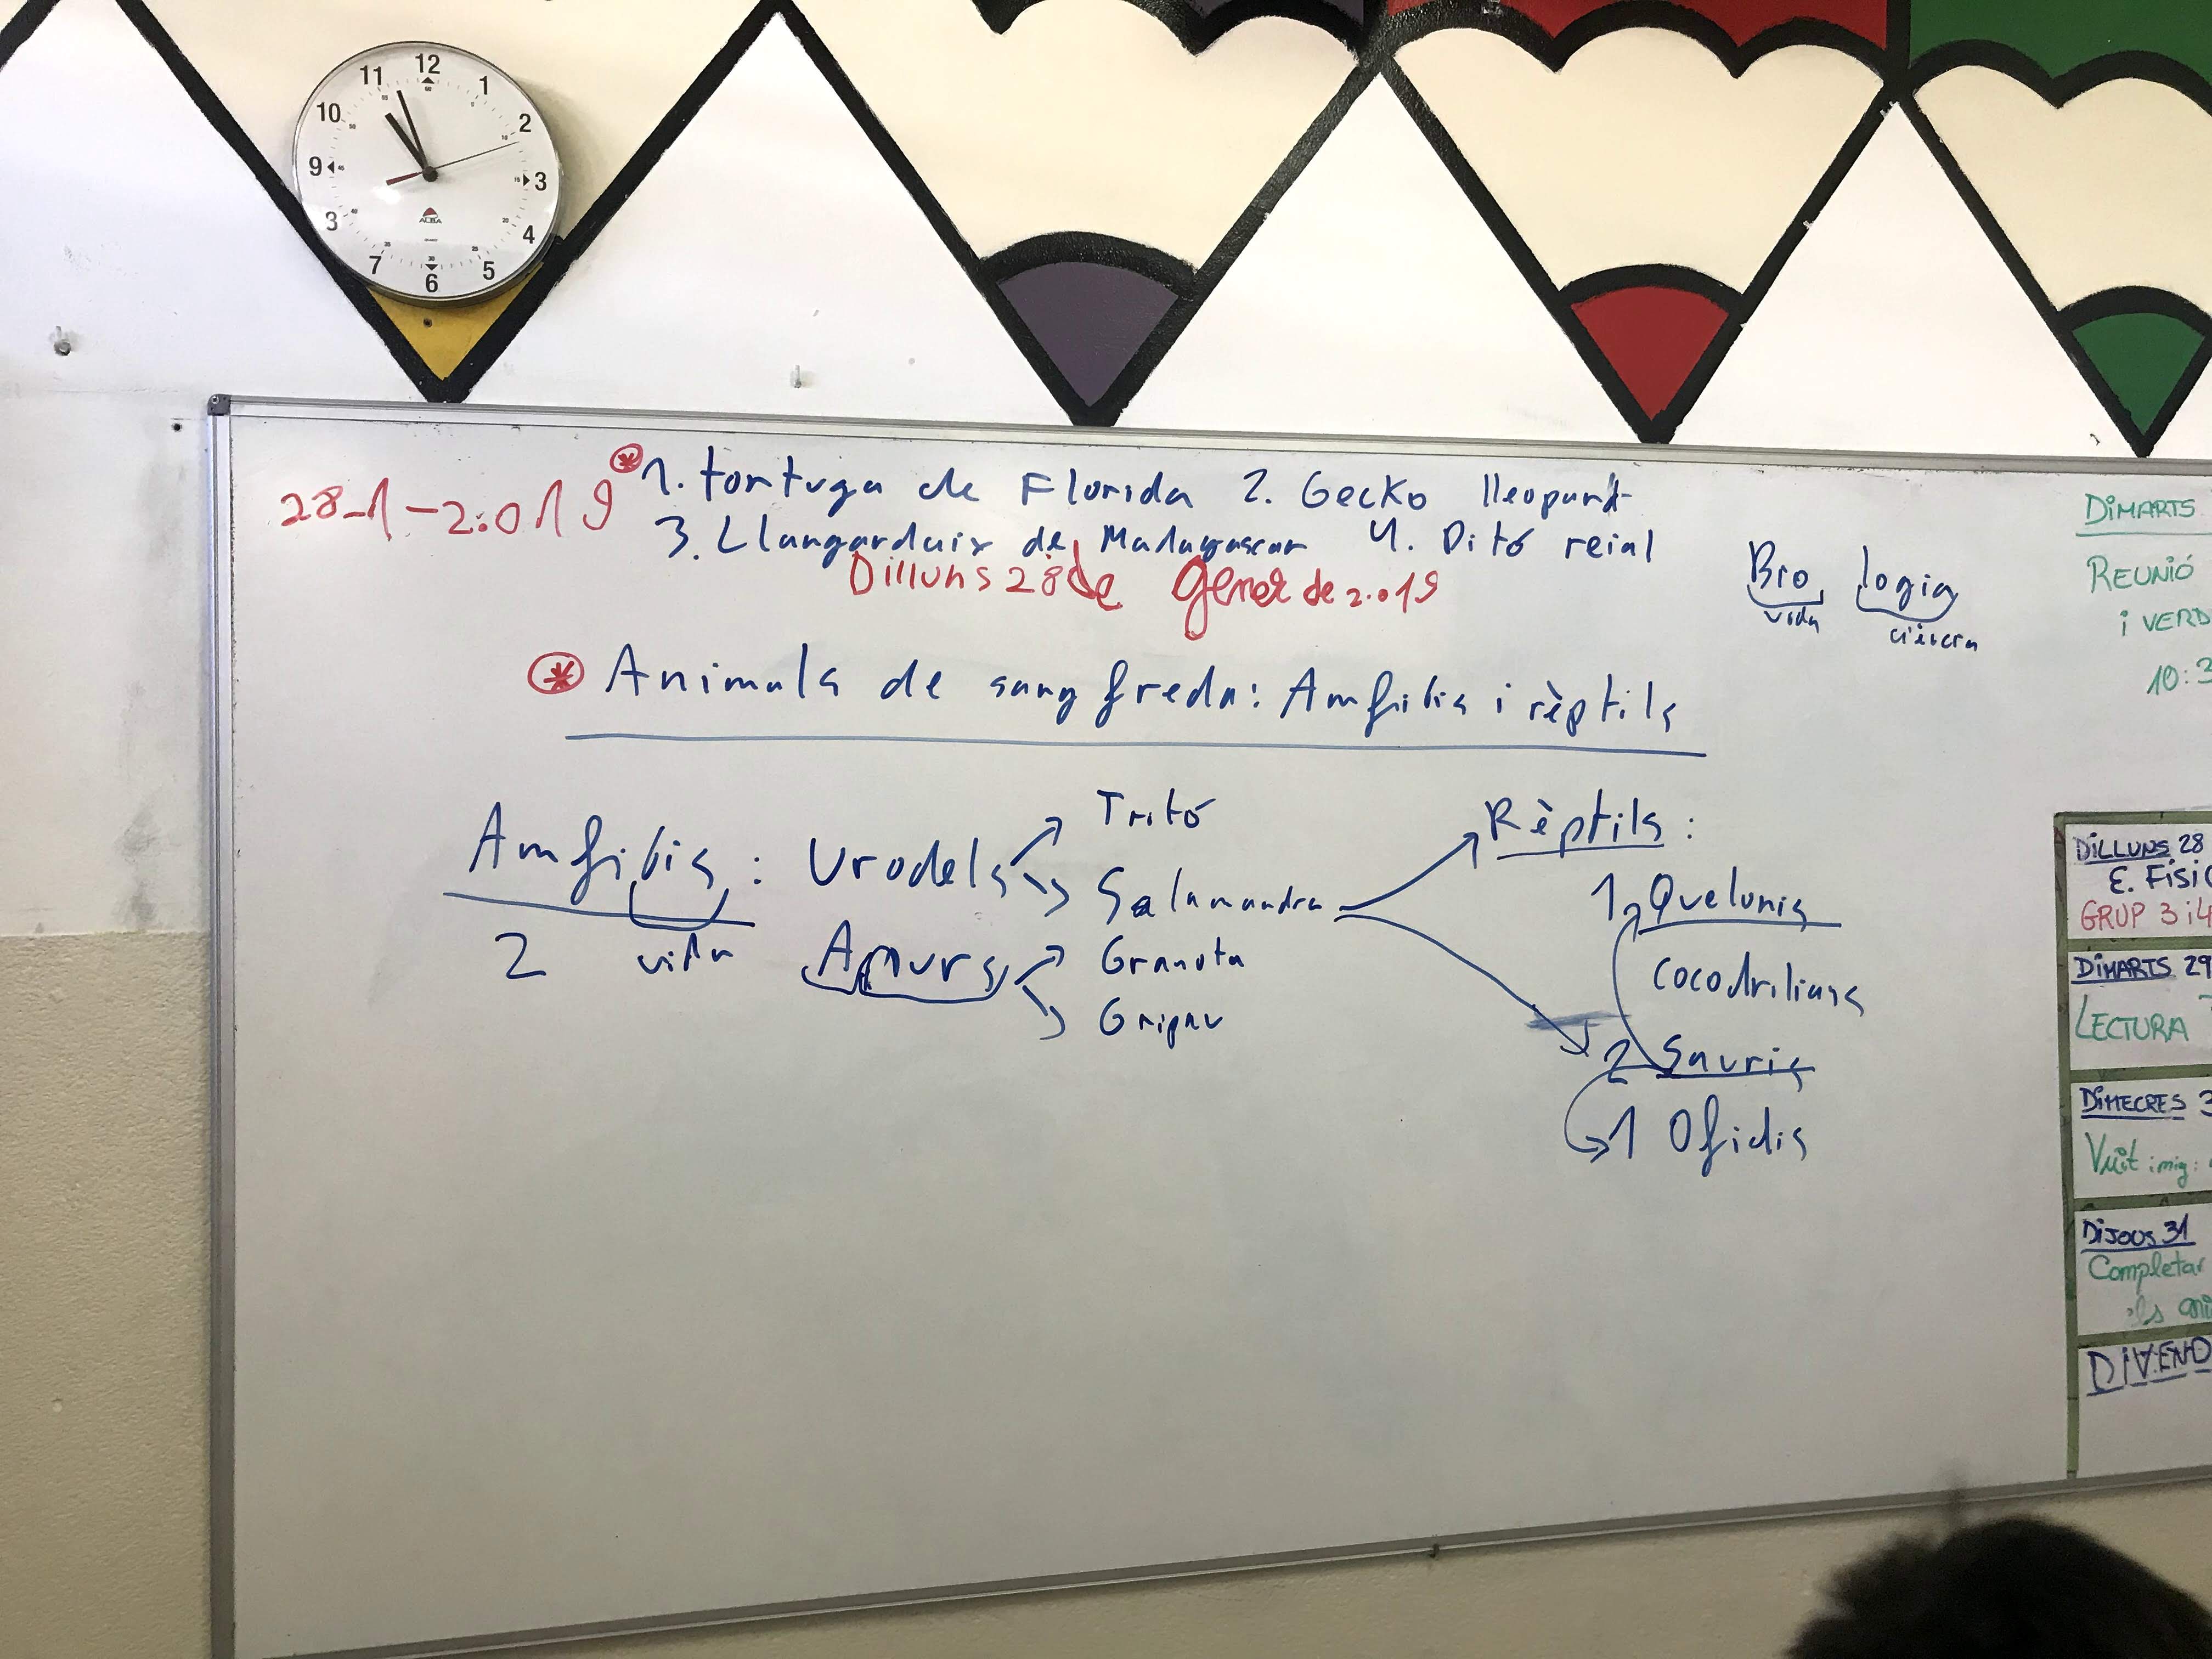 12
11
1
10
2
9
3
3
4
7
5
6
ALBA
28-1-2.019
* 1. tortuga de Florida 2. Gecko lleopard
3. Llangardaix de Madagascar 4. Pitó reial
Dilluns 28 de gener de 2.019
Bio logia
vida ciència
* Animals de sang freda: Amfibis i rèptils
Amfibis: Urodels
2 vida
Anurs
Tritó
Salamandra
Granota
Gripau
Rèptils:
1 Quelonis
cocodrilians
2 Sauris
1 Ofidis
DIMARTS
REUNIÓ
i VERD
10:3
DILLUNS 28
E. FÍSIC
GRUP 3 i 4
DIMARTS 29
LECTURA
DIMECRES 3
Vuit i mig:
DIJOUS 31
Completar
els ani
DIVEND